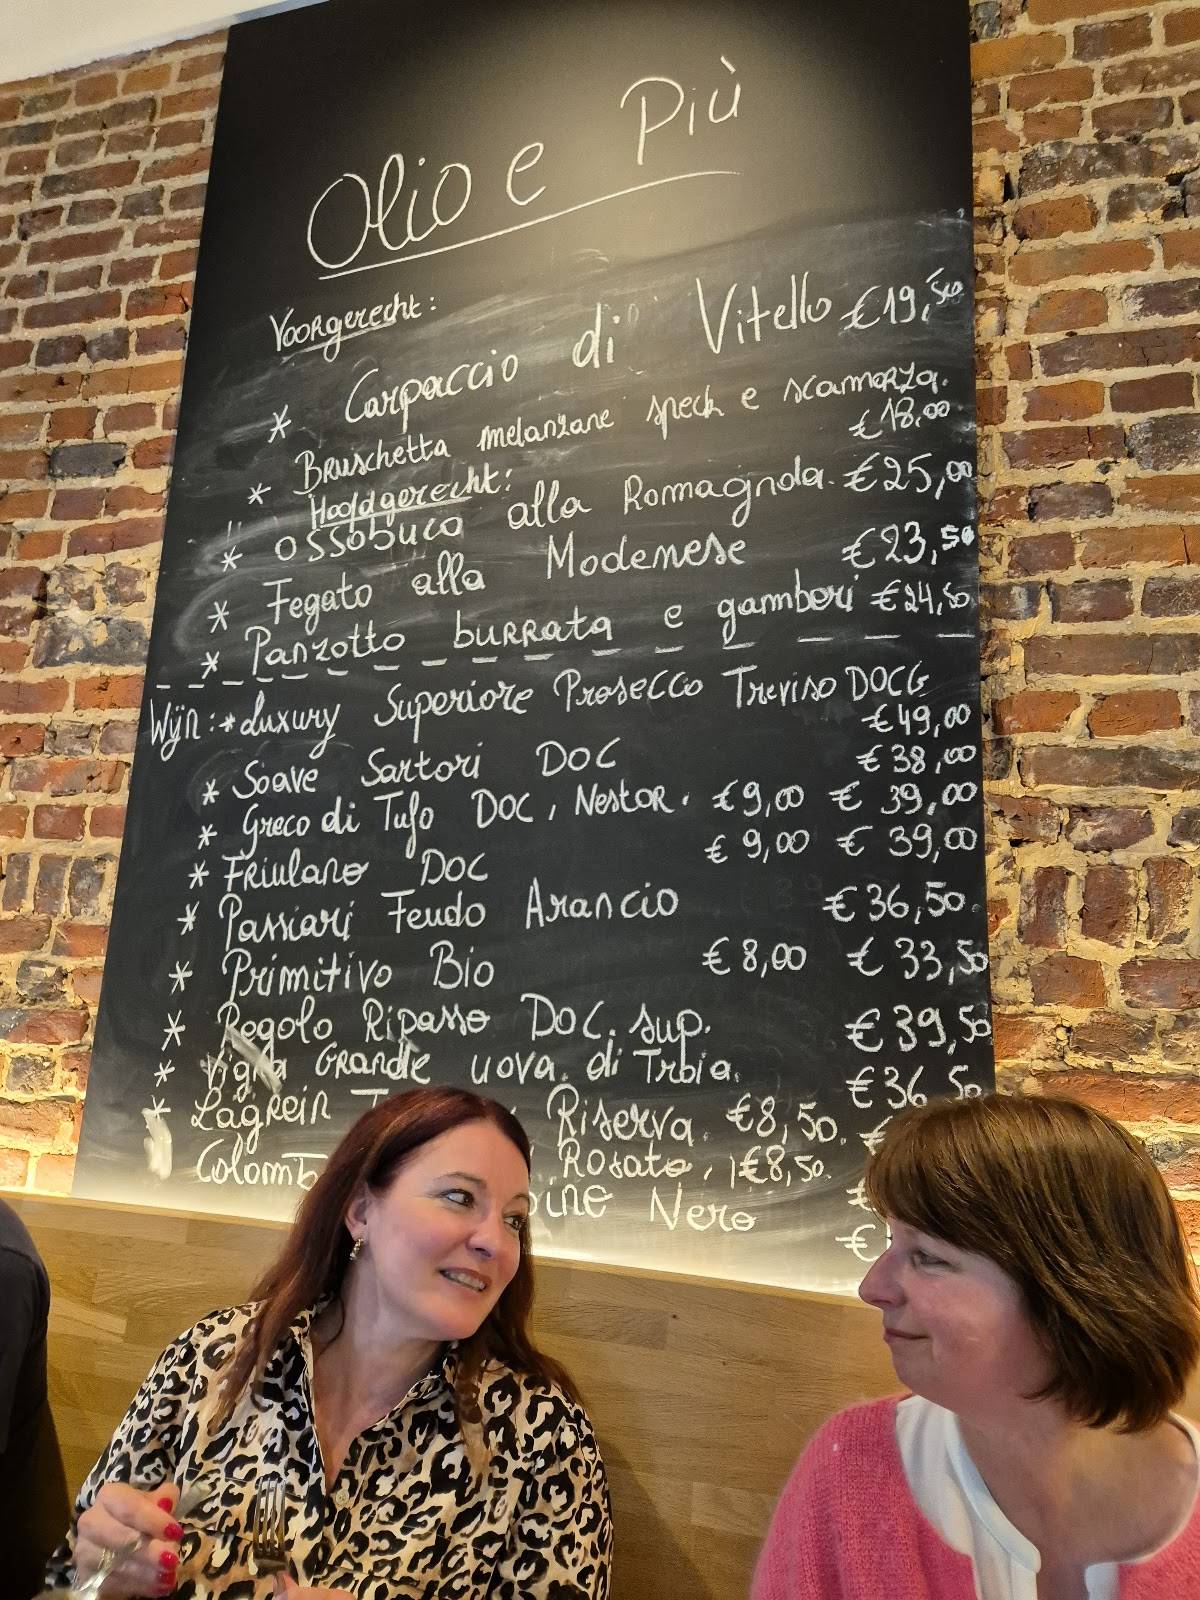 Olio e Più
Voorgerecht:
* Carpaccio di Vitello €19,50
* Bruschetta melanzane speck e scamorza.
€18,00
Hoofdgerecht:
* Ossobuco alla Romagnola. €25,00
* Fegato alla Modenese €23,50
* Panzotto burrata e gamberi €24,50
Wijn: * Luxury Superiore Prosecco Treviso DOCG
€49,00
* Soave Sartori DOC € 38,00
* Greco di Tufo DOC, Nestor. €9,00 € 39,00
* Friulano DOC € 9,00 € 39,00
* Passiari Feudo Arancio € 36,50.
* Primitivo Bio € 8,00 € 33,50
* Regolo Ripasso DOC. sup. € 39,50
* Vigna Grande uova. di Trbia. € 36,50
* Lagrein Riserva. €8,50. €
Rosato, €8,50. €
Nero €